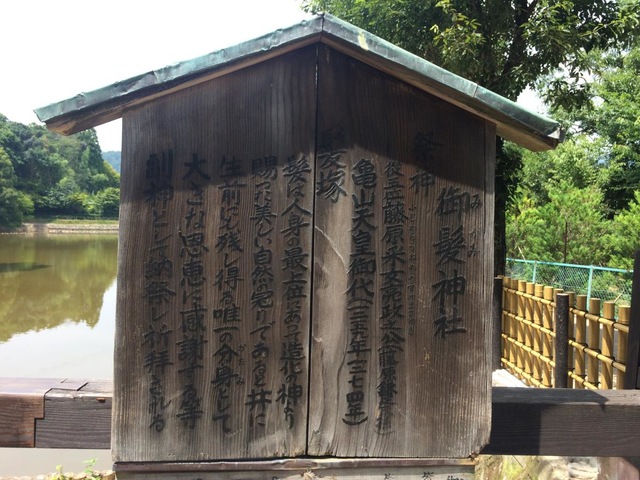 御髪神社
みかみ
祭神
従五位藤原采女亮政之公
亀山天皇御代(一二五九年一二七四年)
髪塚
髪は人身の最上位にあって造化の神より
賜った美しい自然の冠りであると共に
生前に残し得る唯一の分身として
大きな恩恵に感謝する等
副神として納祭し祈拝される